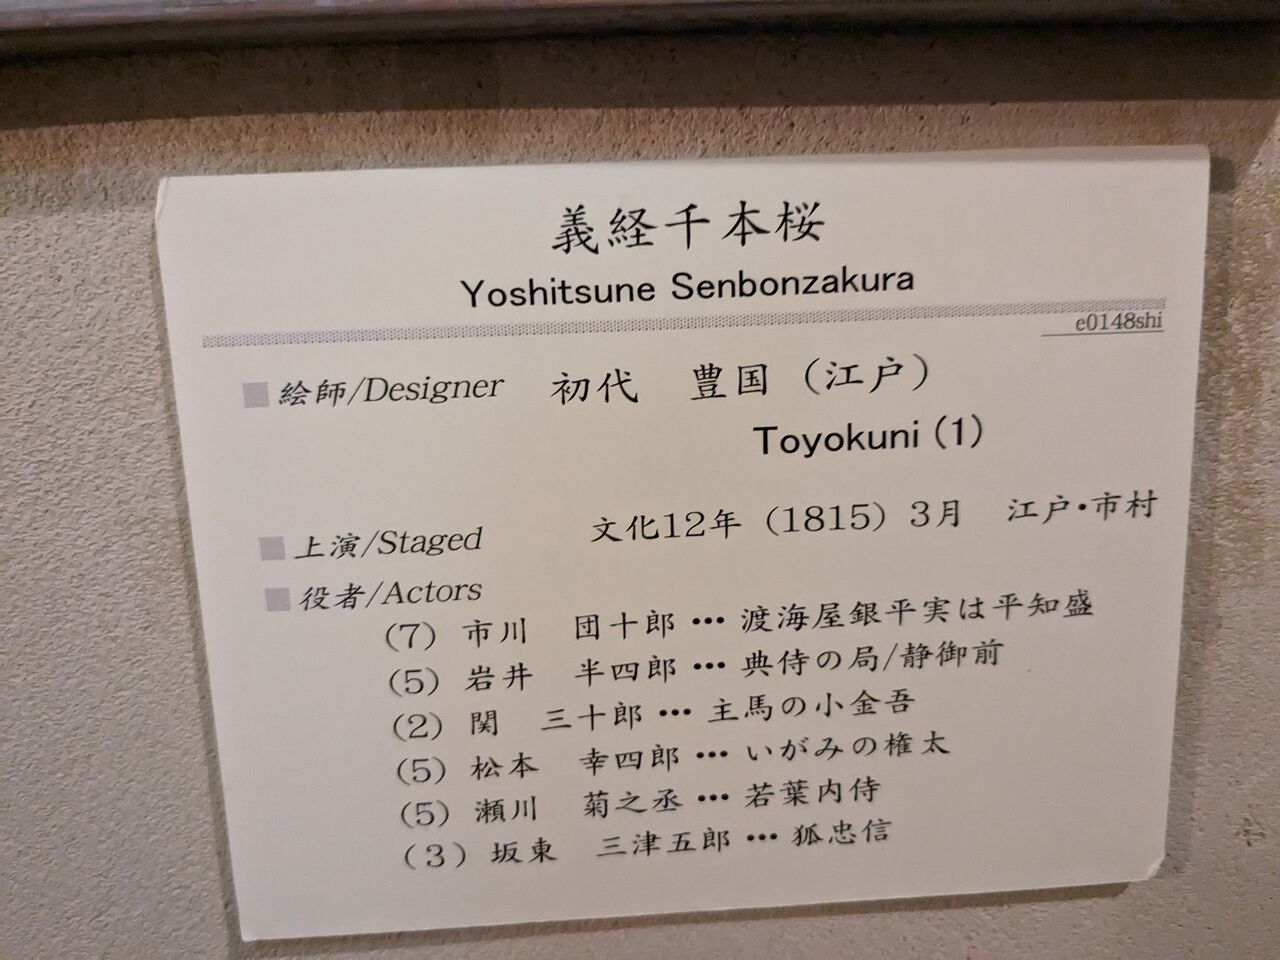 義経千本桜
Yoshitsune Senbonzakura
e0148shi
絵師/Designer 初代 豊国（江戸）
Toyokuni (1)
上演/Staged 文化12年（1815）3月 江戸・市村
役者/Actors
(7) 市川 団十郎 ••• 渡海屋銀平実は平知盛
(5) 岩井 半四郎 ••• 典侍の局/静御前
(2) 関 三十郎 ••• 主馬の小金吾
(5) 松本 幸四郎 ••• いがみの権太
(5) 瀬川 菊之丞 ••• 若葉内侍
(3) 坂東 三津五郎 ••• 狐忠信